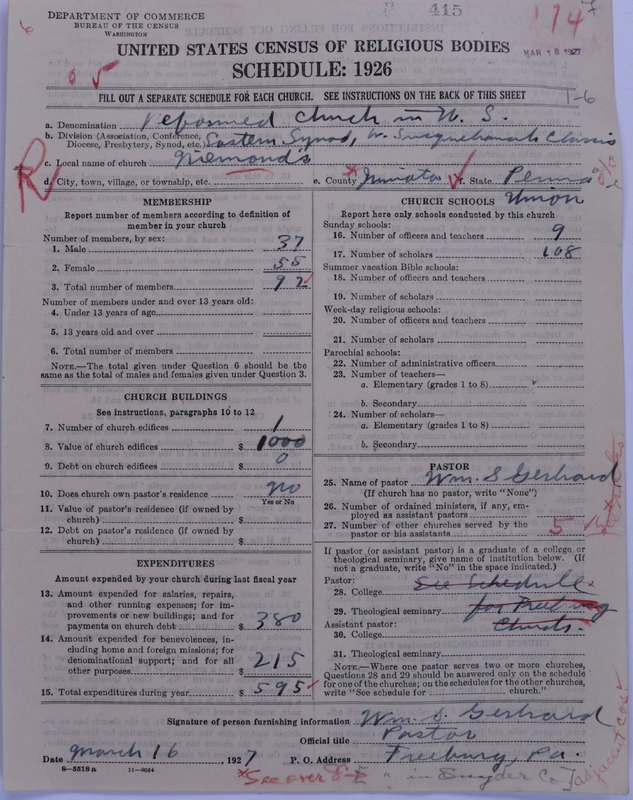 DEPARTMENT OF COMMERCE
BUREAU OF THE CENSUS
WASHINGTON
415
174
MAR 18 1927
UNITED STATES CENSUS OF RELIGIOUS BODIES
SCHEDULE: 1926
FILL OUT A SEPARATE SCHEDULE FOR EACH CHURCH. SEE INSTRUCTIONS ON THE BACK OF THIS SHEET
1-6
a. Denomination Reformed Church in U. S.
b. Division (Association, Conference, Diocese, Presbytery, Synod, etc.) Eastern Synod, W. Susquehanna Classis
c. Local name of church Niemonds
d. City, town, village, or township, etc. e. County Juniata f. State Penna
R
MEMBERSHIP
Report number of members according to definition of
member in your church
Number of members, by sex:
1. Male 37
2. Female 55
3. Total number of members 92
Number of members under and over 13 years old:
4. Under 13 years of age
5. 13 years old and over
6. Total number of members
NOTE.—The total given under Question 6 should be the
same as the total of males and females given under Question 3.
CHURCH BUILDINGS
See instructions, paragraphs 10 to 12
7. Number of church edifices 1
8. Value of church edifices $ 1000
9. Debt on church edifices $ 0
10. Does church own pastor's residence no
Yes or No
11. Value of pastor's residence (if owned by
church) $
12. Debt on pastor's residence (if owned by
church) $
EXPENDITURES
Amount expended by your church during last fiscal year
13. Amount expended for salaries, repairs,
and other running expenses; for im-
provements or new buildings; and for
payments on church debt $ 380
14. Amount expended for benevolences, in-
cluding home and foreign missions; for
denominational support; and for all
other purposes $ 215
15. Total expenditures during year $ 595
CHURCH SCHOOLS Union
Report here only schools conducted by this church
Sunday schools:
16. Number of officers and teachers 9
17. Number of scholars 108
Summer vacation Bible schools:
18. Number of officers and teachers
19. Number of scholars
Week-day religious schools:
20. Number of officers and teachers
21. Number of scholars
Parochial schools:
22. Number of administrative officers
23. Number of teachers—
a. Elementary (grades 1 to 8)
b. Secondary
24. Number of scholars—
a. Elementary (grades 1 to 8)
b. Secondary
PASTOR
25. Name of pastor Wm. S. Gerhard
(If church has no pastor, write "None")
26. Number of ordained ministers, if any, em-
ployed as assistant pastors
27. Number of other churches served by the
pastor or his assistants 5
If pastor (or assistant pastor) is a graduate of a college or
theological seminary, give name of institution below. (If
not a graduate, write "No" in the space indicated.)
Pastor:
28. College See Schedule
29. Theological seminary for Freeburg
Assistant pastor: Church
30. College
31. Theological seminary
NOTE.—Where one pastor serves two or more churches,
Questions 28 and 29 should be answered only on the schedule
for one of the churches; on the schedules for the other churches,
write "See schedule for church."
Signature of person furnishing information Wm. S. Gerhard
Official title Pastor
Date March 16, 1927 P. O. Address Freeburg, Pa.
8—5518a 11—9034
See over
in Snyder Co.
adjacent co